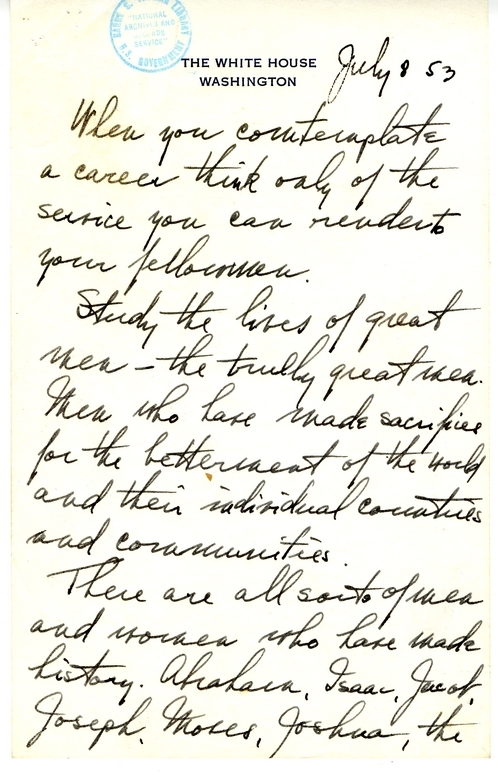 HARRY S. TRUMAN LIBRARY
"NATIONAL
ARCHIVES AND
RECORDS
SERVICE"
U.S. GOVERNMENT
THE WHITE HOUSE
WASHINGTON
July 8 53
When you comtemplate
a career think only of the
service you can render to
your fellowmen.
Study the lives of great
men – the trully great men.
Men who have made sacrifice
for the betterment of the world
and their individual countries
and communities.
There are all sorts of men
and women who have made
history. Abraham, Isaac, Jacob,
Joseph, Moses, Joshua, the